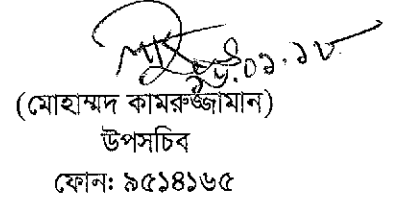 (মোহাম্মদ কামরুজ্জামান)
উপসচিব
ফোন: ৯৫১৪১৬৫